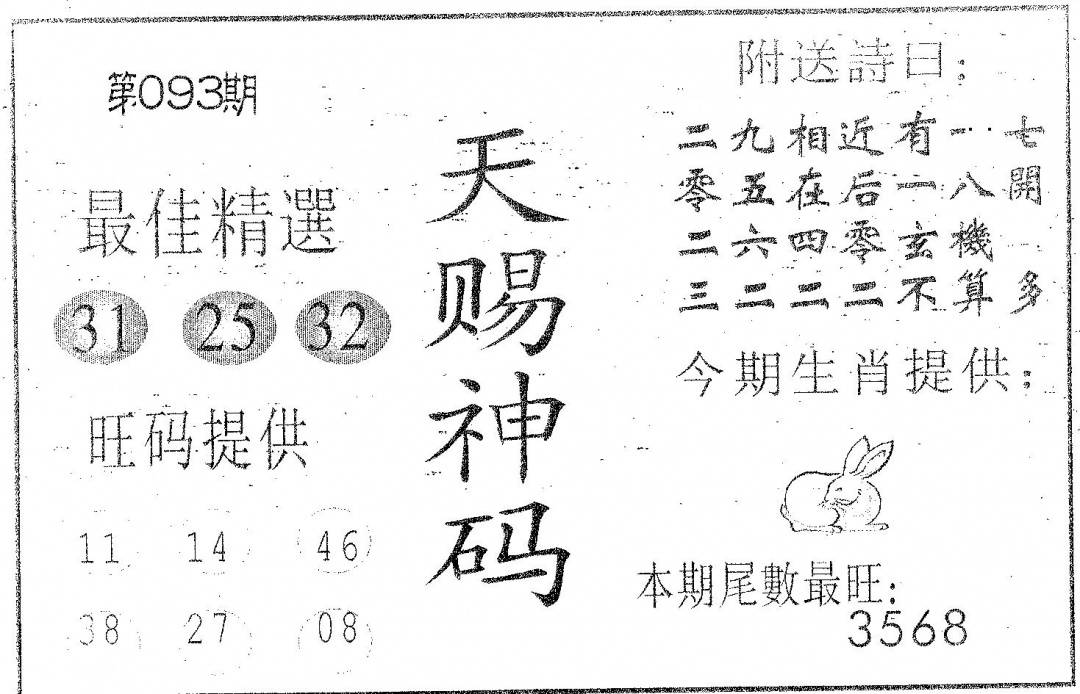 第093期
最佳精選
31 25 32
旺码提供
11 14 46
38 27 08
天赐神码
附送詩曰:
二九相近有一七
零五在后一八開
二六四零玄機
三二二二不算多
今期生肖提供:
本期尾數最旺:
3568